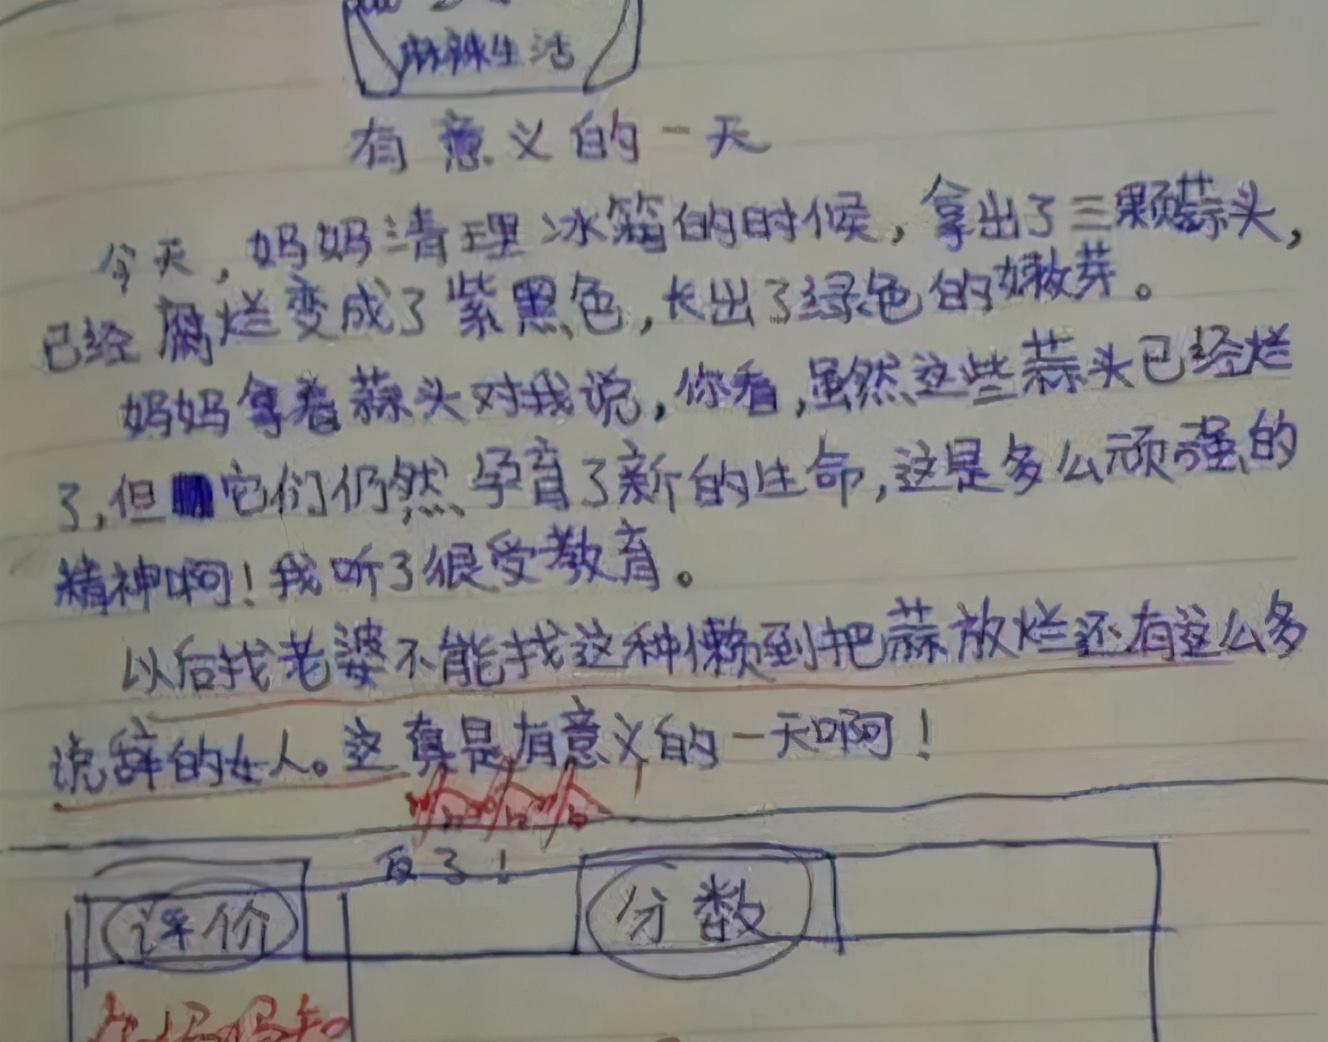 麻辣生活
有意义的一天
今天，妈妈清理冰箱的时候，拿出了三颗蒜头，
已经腐烂变成了紫黑色，长出了绿色的嫩芽。
妈妈拿着蒜头对我说，你看，虽然这些蒜头已经烂
了，但它们仍然孕育了新的生命，这是多么顽强的
精神啊！我听了很受教育。
以后找老婆不能找这种懒到把蒜放烂还有这么多
说辞的女人。这真是有意义的一天啊！
哈哈哈
反了！
评价
分数